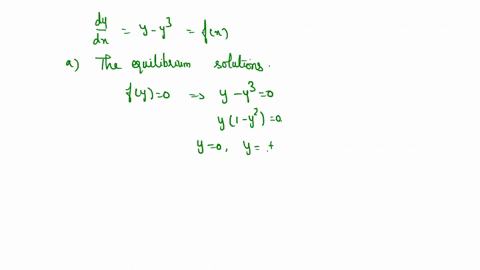 dy/dx = y - y³ = f(x)
a) The equilibrium solutions.
f(y)=0 ⇒ y - y³ = 0
y(1 - y²) = 0
y = 0, y = +